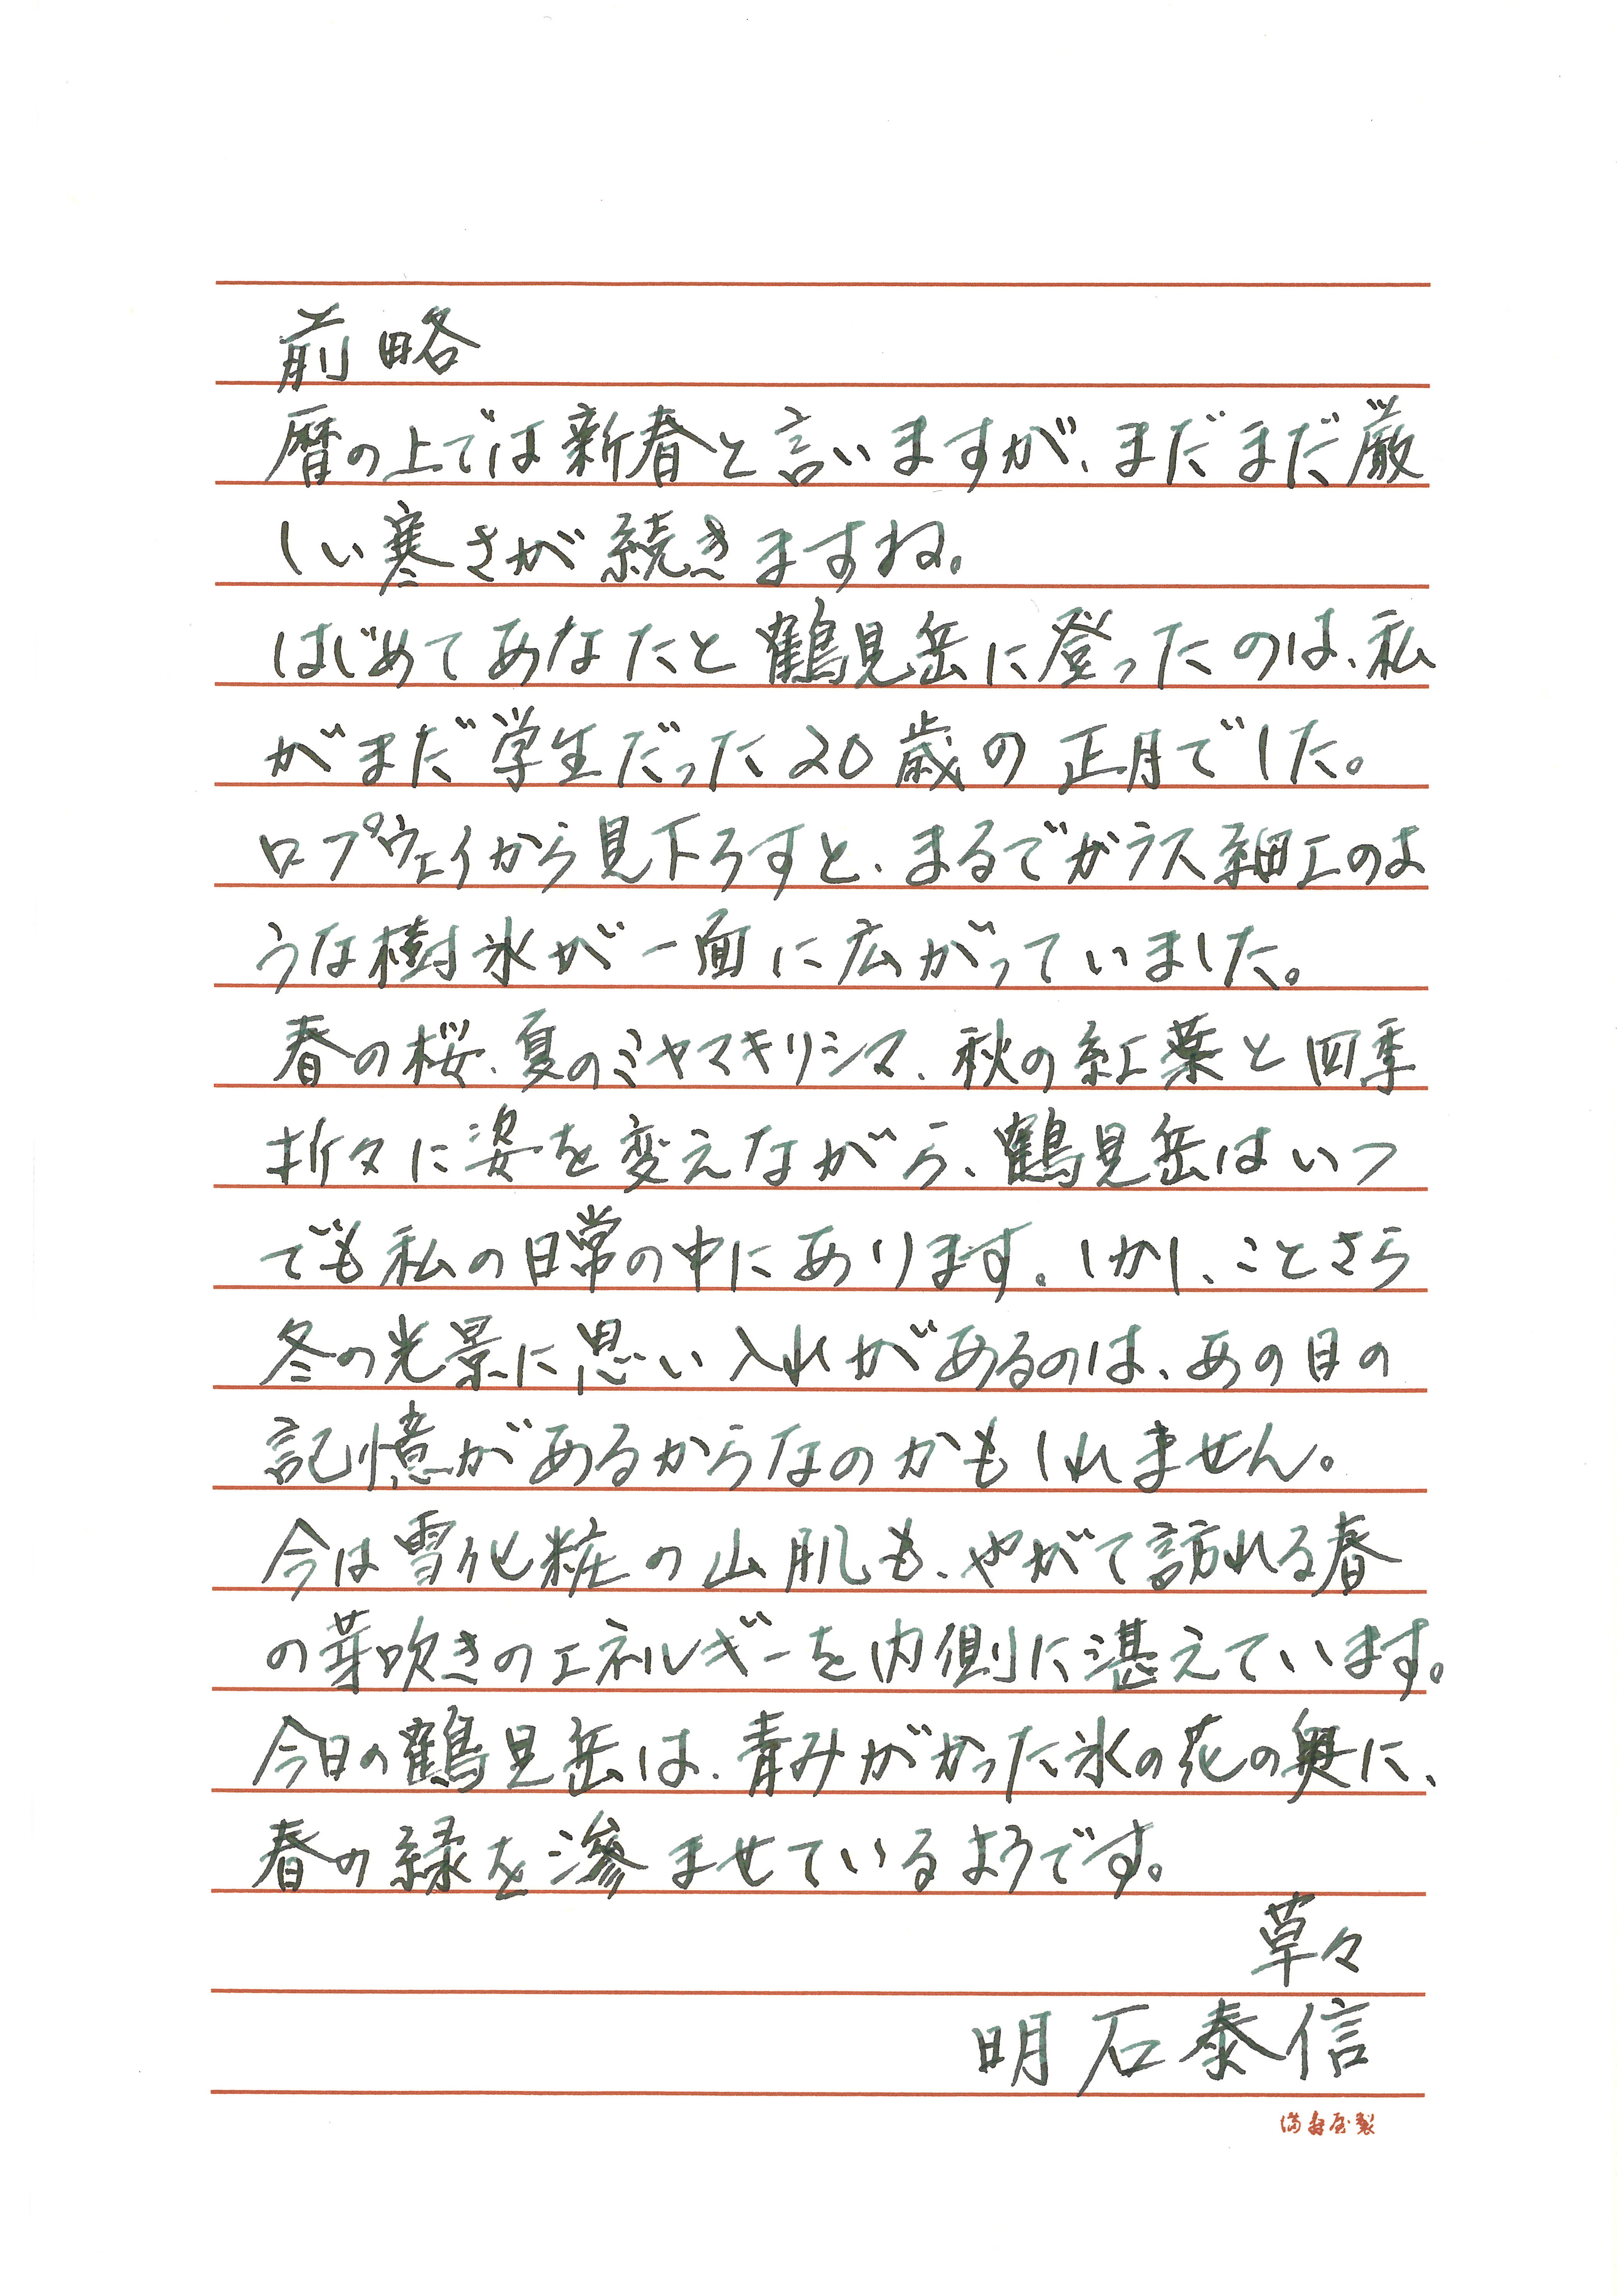 前略
暦の上では新春と言いますが、まだまだ厳
しい寒さが続きますね。
はじめてあなたと鶴見岳に登ったのは、私
がまだ学生だった20歳の正月でした。
ロプウェイから見下ろすと、まるでガラス細工のよ
うな樹氷が一面に広がっていました。
春の桜、夏のミヤマキリシマ、秋の紅葉と四季
折々に姿を変えながら、鶴見岳はいつ
でも私の日常の中にあります。しかし、ことさら
冬の光景に思い入れがあるのは、あの日の
記憶があるからなのかもしれません。
今は雪化粧の山肌も、やがて訪れる春
の芽吹きのエネルギーを内側に湛えています。
今日の鶴見岳は、青みがかった氷の花の奥に、
春の緑を滲ませているようです。
草々
明石泰信
満寿屋製